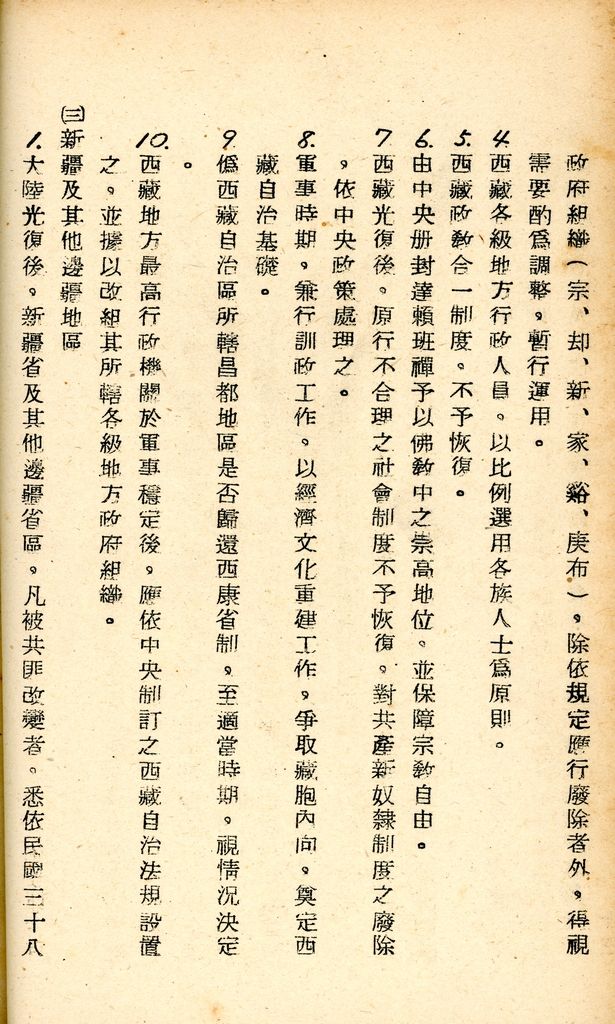 政府組織（宗、却、新、家、谿、庚布），除依規定應行廢除者外，得視
需要酌爲調整，暫行運用。
4.西藏各級地方行政人員，以比例選用各族人士爲原則。
5.西藏政教合一制度，不予恢復。
6.由中央册封達賴班禪予以佛教中之崇高地位，並保障宗教自由。
7.西藏光復後，原行不合理之社會制度不予恢復，對共產新奴隸制度之廢除
，依中央政策處理之。
8.軍事時期，兼行訓政工作，以經濟文化重建工作，爭取藏胞內向，奠定西
藏自治基礎。
9.僞西藏自治區所轄昌都地區是否歸還西康省制，至適當時期，視情況決定
。
10.西藏地方最高行政機關於軍事穩定後，應依中央制訂之西藏自治法規設置
之，並據以改組其所轄各級地方政府組織。
㈢新疆及其他邊疆地區
1.大陸光復後，新疆省及其他邊疆省區，凡被共匪改變者，悉依民國三十八